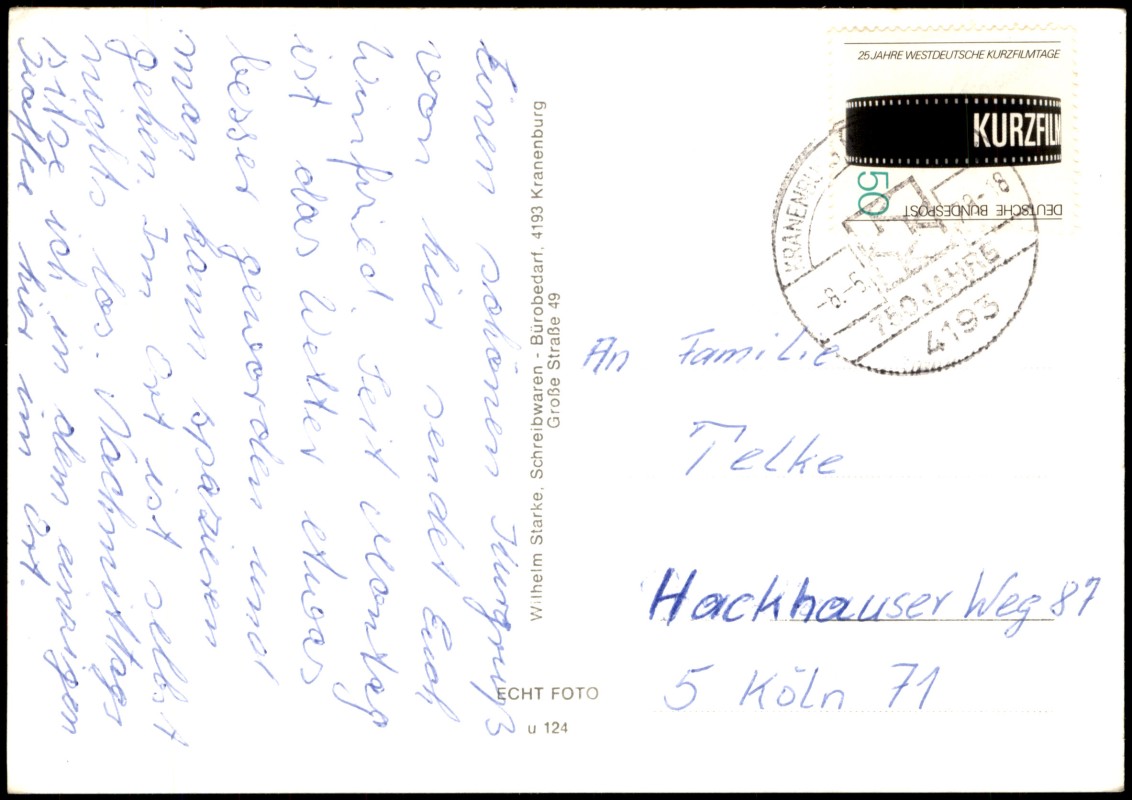 Einen schönen Kurgruß
von hier sendet Euch
Winfried. Seit Montag
ist das Wetter etwas
besser geworden und
man kann spazieren
gehen. Im Ort ist selbst
nichts los. Nachmittags
sitze ich in dem einzigen
Kaffee hier im Ort.
Wilhelm Starke, Schreibwaren - Bürobedarf, 4193 Kranenburg
Große Straße 49
ECHT FOTO
u 124
25 JAHRE WESTDEUTSCHE KURZFILMTAGE
KURZFILM
50
DEUTSCHE BUNDESPOST
-8.-6
750 JAHRE
4193
An Familie
Telke
Hackhauser Weg 87
5 Köln 71